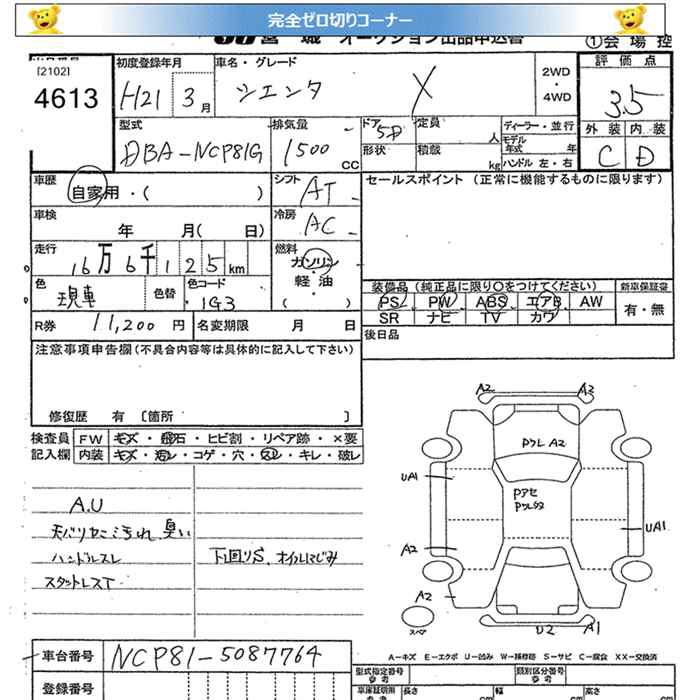 完全ゼロ切りコーナー
宮城 オークション出品申込書
①会場控
[2102]
4613
初度登録年月
H21 3月
車名・グレード
シエンタ X
2WD
・
4WD
評価点
3.5
外装 内装
C D
型式
DBA-NCP81G
排気量
1500 CC
ドア 5D
形状
定員 人
積載 kg
ディーラー・並行
モデル年式 年
ハンドル 左・右
車歴
自家用・( )
シフト AT
セールスポイント (正常に機能するものに限ります)
車検
年 月( 日)
冷房 AC
走行
16万6千125km
燃料
ガソリン
・
軽油
( )
色
現車
色替
色コード
1G3
装備品 (純正品に限り○をつけてください)
新車保証書
PS PW ABS エアB AW
SR ナビ TV カワ
有・無
R券 11,200円
名変期限 月 日
後日品
注意事項申告欄(不具合内容等は具体的に記入して下さい)
修復歴 有 [箇所 ]
検査員
記入欄
FW キズ・飛石・ヒビ割・リペア跡・×要
内装 キズ・汚レ・コゲ・穴・スレ・キレ・破レ
A.U
汚れ、臭い
ハンドルスレ
スタットレスT
下回りS、オイルにじみ
A2 A2
Pクレ A2
UA1
Pアセ
UA1
A2
A2
スペア
U2 A1
A=キズ E=エクボ U=凹み W=補修跡 S=サビ C=腐食 XX=交換済
車台番号 NCP81-5087764
登録番号
型式指定番号
参考
類別区分番号
参考
車庫証明用
参考
長さ cm
幅 cm
高さ cm